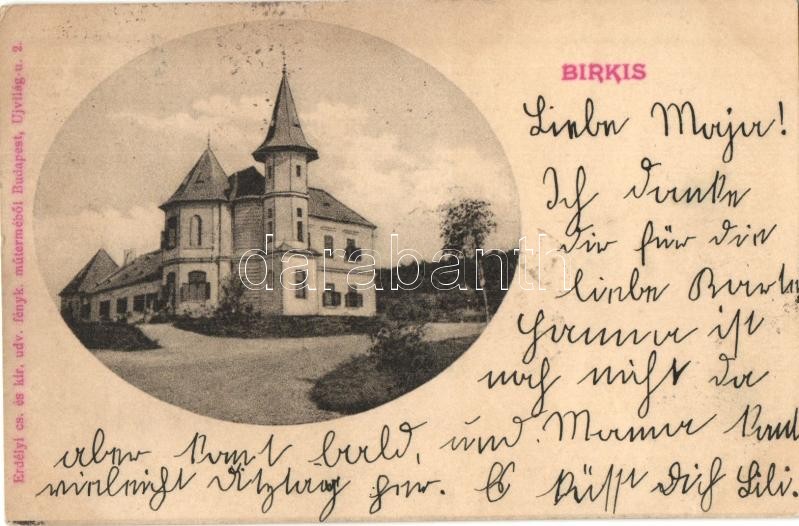 BIRKIS
Liebe Maja!
Ich danke
dir für die
liebe Karte
Hanna ist
noch nicht da
aber komt bald, und Mama komt
vielleicht Ditztag her. Es küsst Dich Lili.
Erdélyi cs. és kir. udv. fényk. műterméből Budapest, Ujvilág-u. 2.
darabanth.com